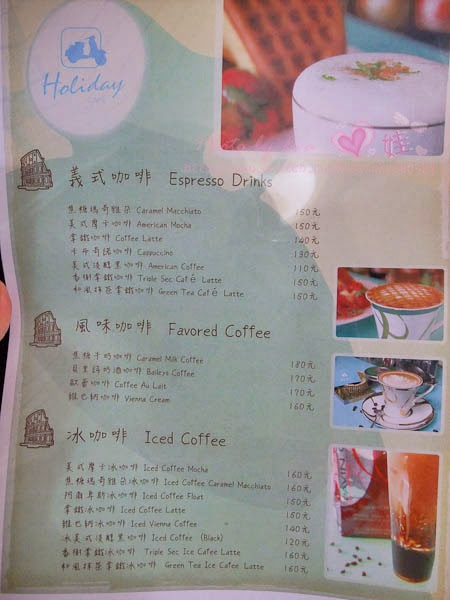 Holiday
CAFE
義式咖啡 Espresso Drinks
焦糖瑪奇雅朵 Caramel Macchiato 150元
美式摩卡咖啡 American Mocha 150元
拿鐵咖啡 Coffee Latte 140元
卡布奇諾咖啡 Cappuccino 130元
美式淺醇黑咖啡 American Coffee 110元
香榭拿鐵咖啡 Triple Sec Café Latte 150元
和風抹茶拿鐵咖啡 Green Tea Café Latte 150元
風味咖啡 Favored Coffee
焦糖牛奶咖啡 Caramel Milk Coffee 180元
貝里詩奶酒咖啡 Baileys Coffee 170元
歐蕾咖啡 Coffee Au Lait 170元
維也納咖啡 Vienna Cream 160元
冰咖啡 Iced Coffee
美式摩卡冰咖啡 Iced Coffee Mocha 160元
焦糖瑪奇雅朵冰咖啡 Iced Coffee Caramel Macchiato 160元
阿爾卑斯冰咖啡 Iced Coffee Float 150元
拿鐵冰咖啡 Iced Coffee Latte 150元
維也納冰咖啡 Iced Vienna Coffee 140元
冰美式淺醇黑咖啡 Iced Coffee (Black) 120元
香榭拿鐵冰咖啡 Triple Sec Ice Cafee Latte 160元
和風抹茶拿鐵冰咖啡 Green Tea Ice Cafee Latte 160元